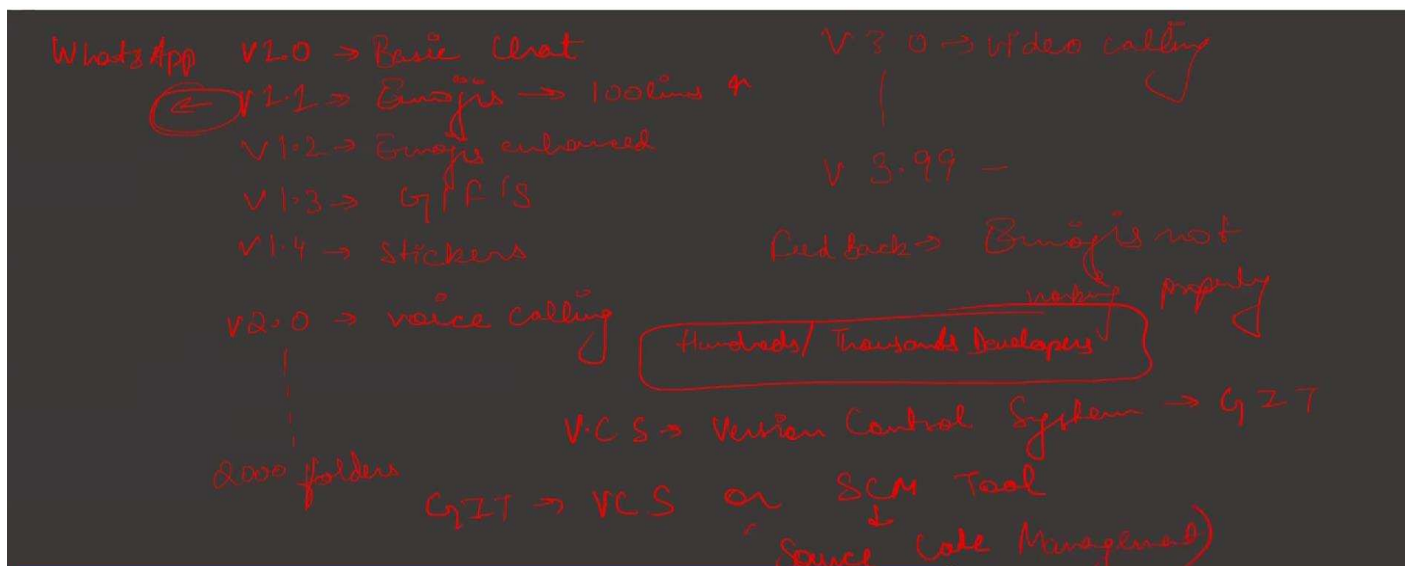 WhatsApp V1.0 → Basic Chat
← V1.1 → Emojis → 100lines
V1.2 → Emojis enhanced
V1.3 → GIF'S
V1.4 → Stickers
V2.0 → voice calling
2000 folders
V 3.0 → video calling
V 3.99 —
Feed Back → Emojis not
working properly
Hundreds/ Thousands Developers
V.C S → Version Control System → GIT
GIT → VCS or SCM Tool
↓
Source Code Management)